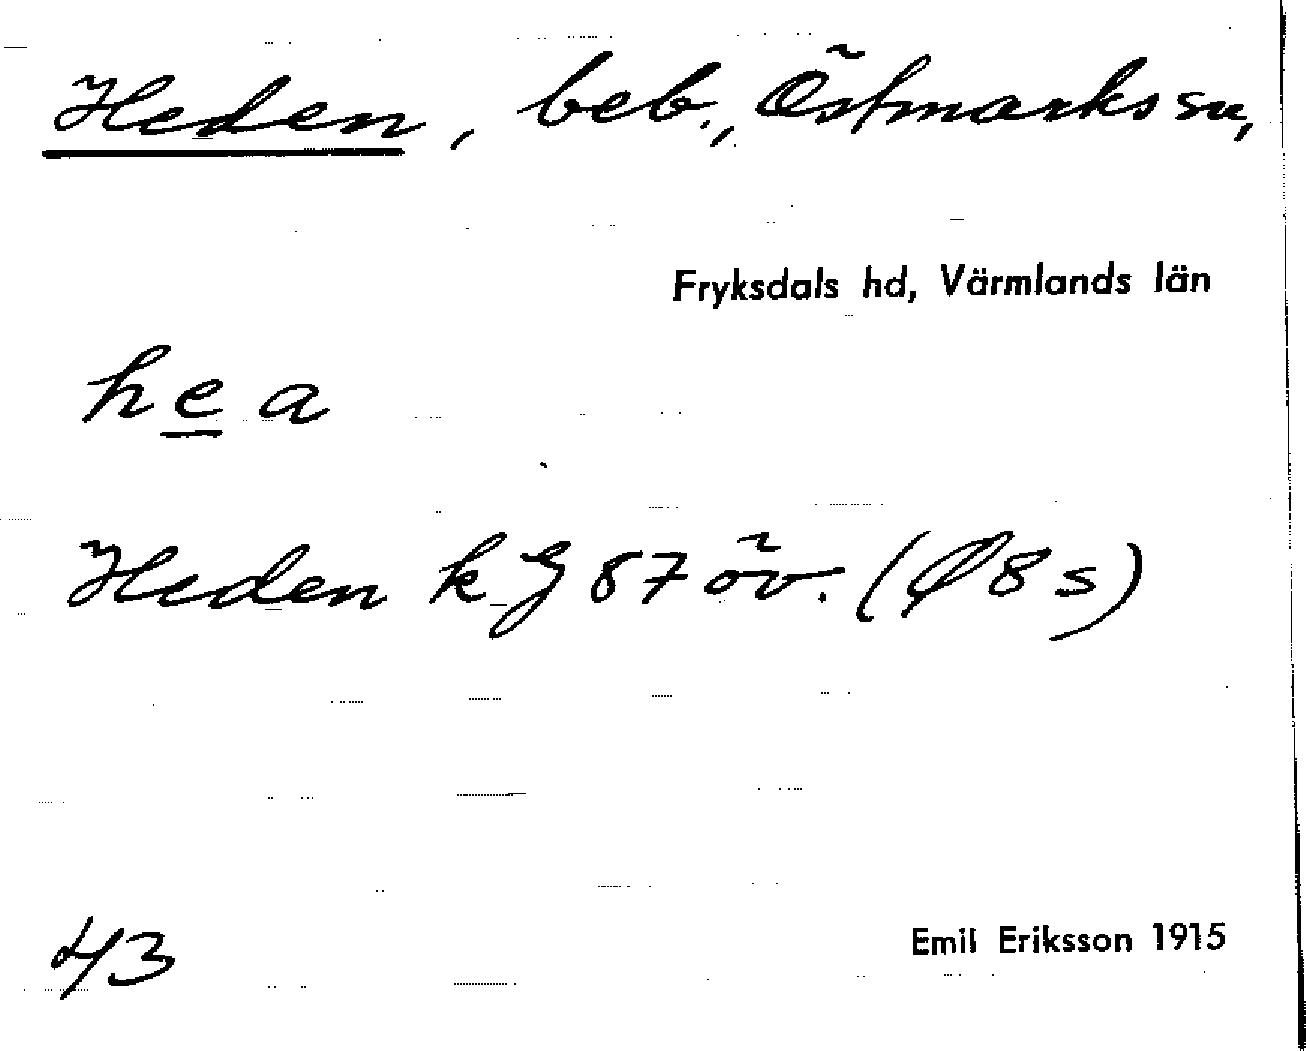 Heden, beb., Östmarks sn,
Fryksdals hd, Värmlands län
hea
Heden k G 87 öv. (Ø 8 s)
43
Emil Eriksson 1915